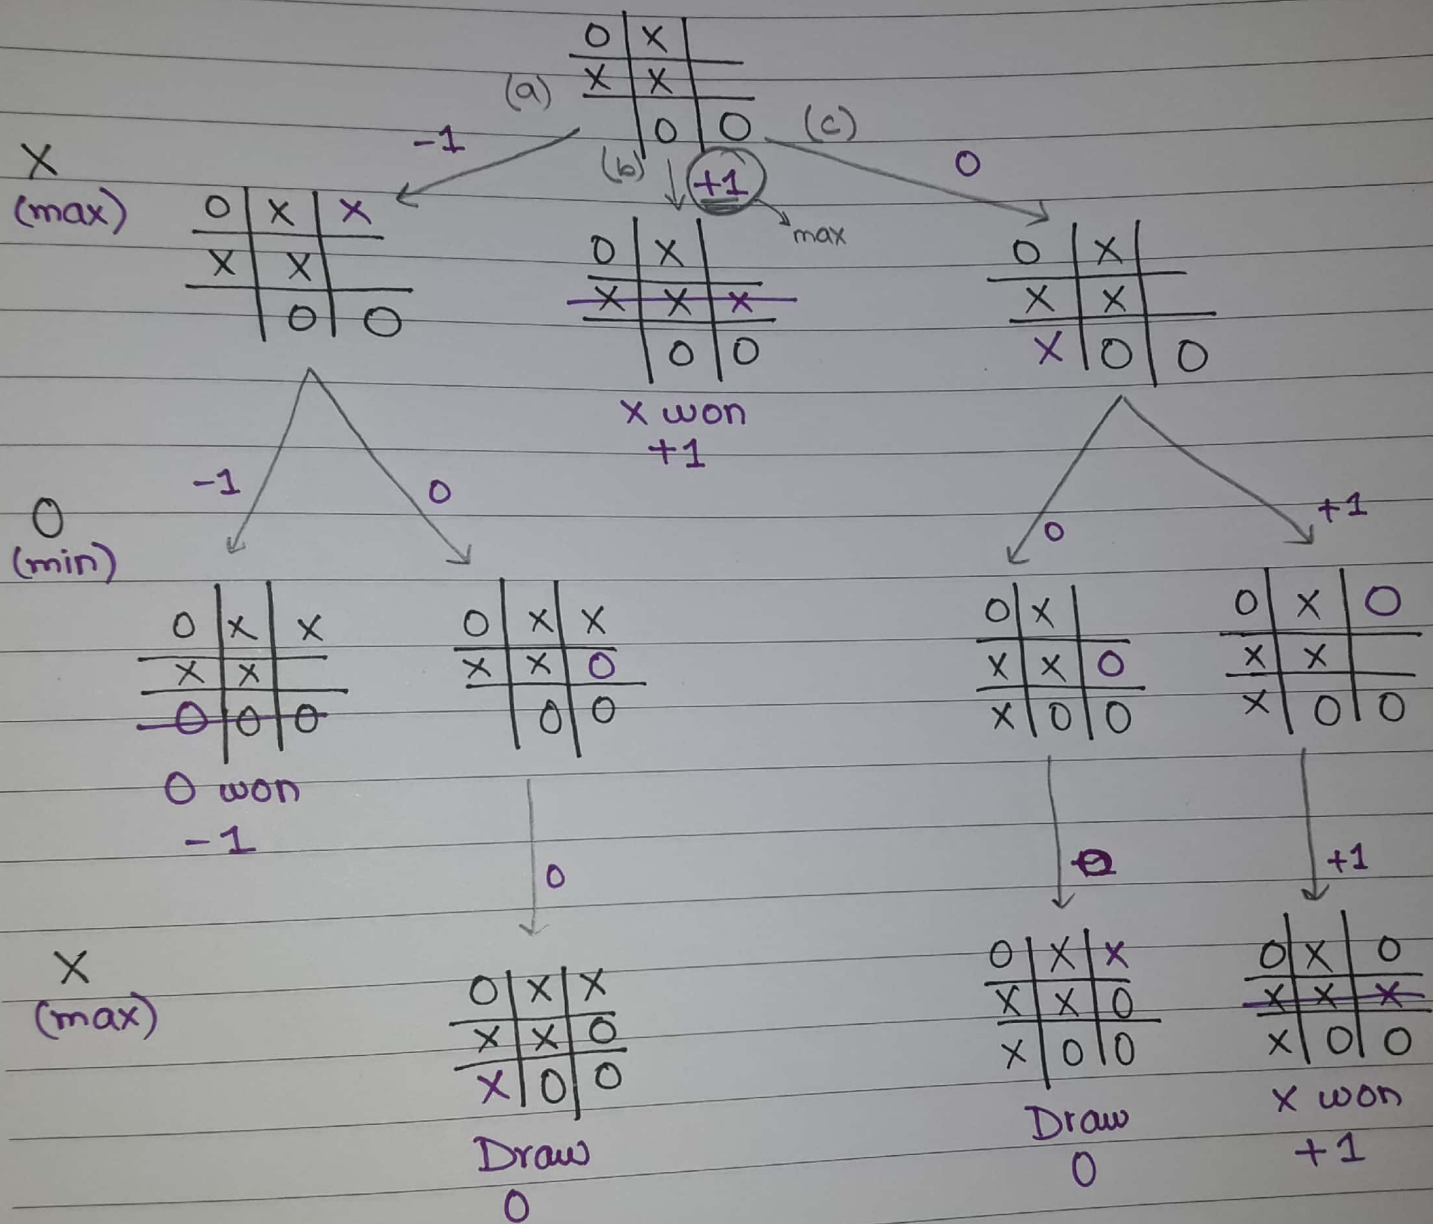 O X
X X
(a)
O O
(c)
-1
(b)
+1
0
max
X
(max)
O X X
X X
O O
O X
X X X
O O
X won
+1
O X
X X
X O O
-1
0
0
+1
O
(min)
O X X
X X
O O O
O won
-1
O X X
X X O
O O
O X
X X O
X O O
O X O
X X
X O O
0
0
+1
X
(max)
O X X
X X O
X O O
Draw
0
O X X
X X O
X O O
Draw
0
O X O
X X X
X O O
X won
+1